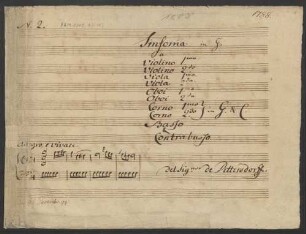 N. 2.
1786.
Sinfonia in G.
a
Violino 1mo
Violino 2do
Viola 1ma
Viola 2da
Oboi 1mo
Oboi 2do
Corno 1mo
Corno 2do in G. & C
Basso
Contrabasso
Allegro e vivace
del Sigre de Dittersdorff